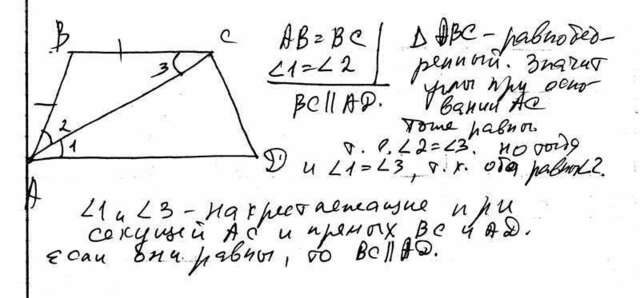 B
C
3
2
1
A
D
AB = BC
∠1 = ∠2
BC ∥ AD.
Δ ABC – равнобед-
ренный. Значит
углы при осно-
вании AC
тоже равны.
т. е. ∠2 = ∠3. но тогда
и ∠1 = ∠3, т.к. оба равны ∠2.
∠1 и ∠3 – накрестлежащие при
секущей AC и прямых BC и AD.
Если они равны, то BC ∥ AD.